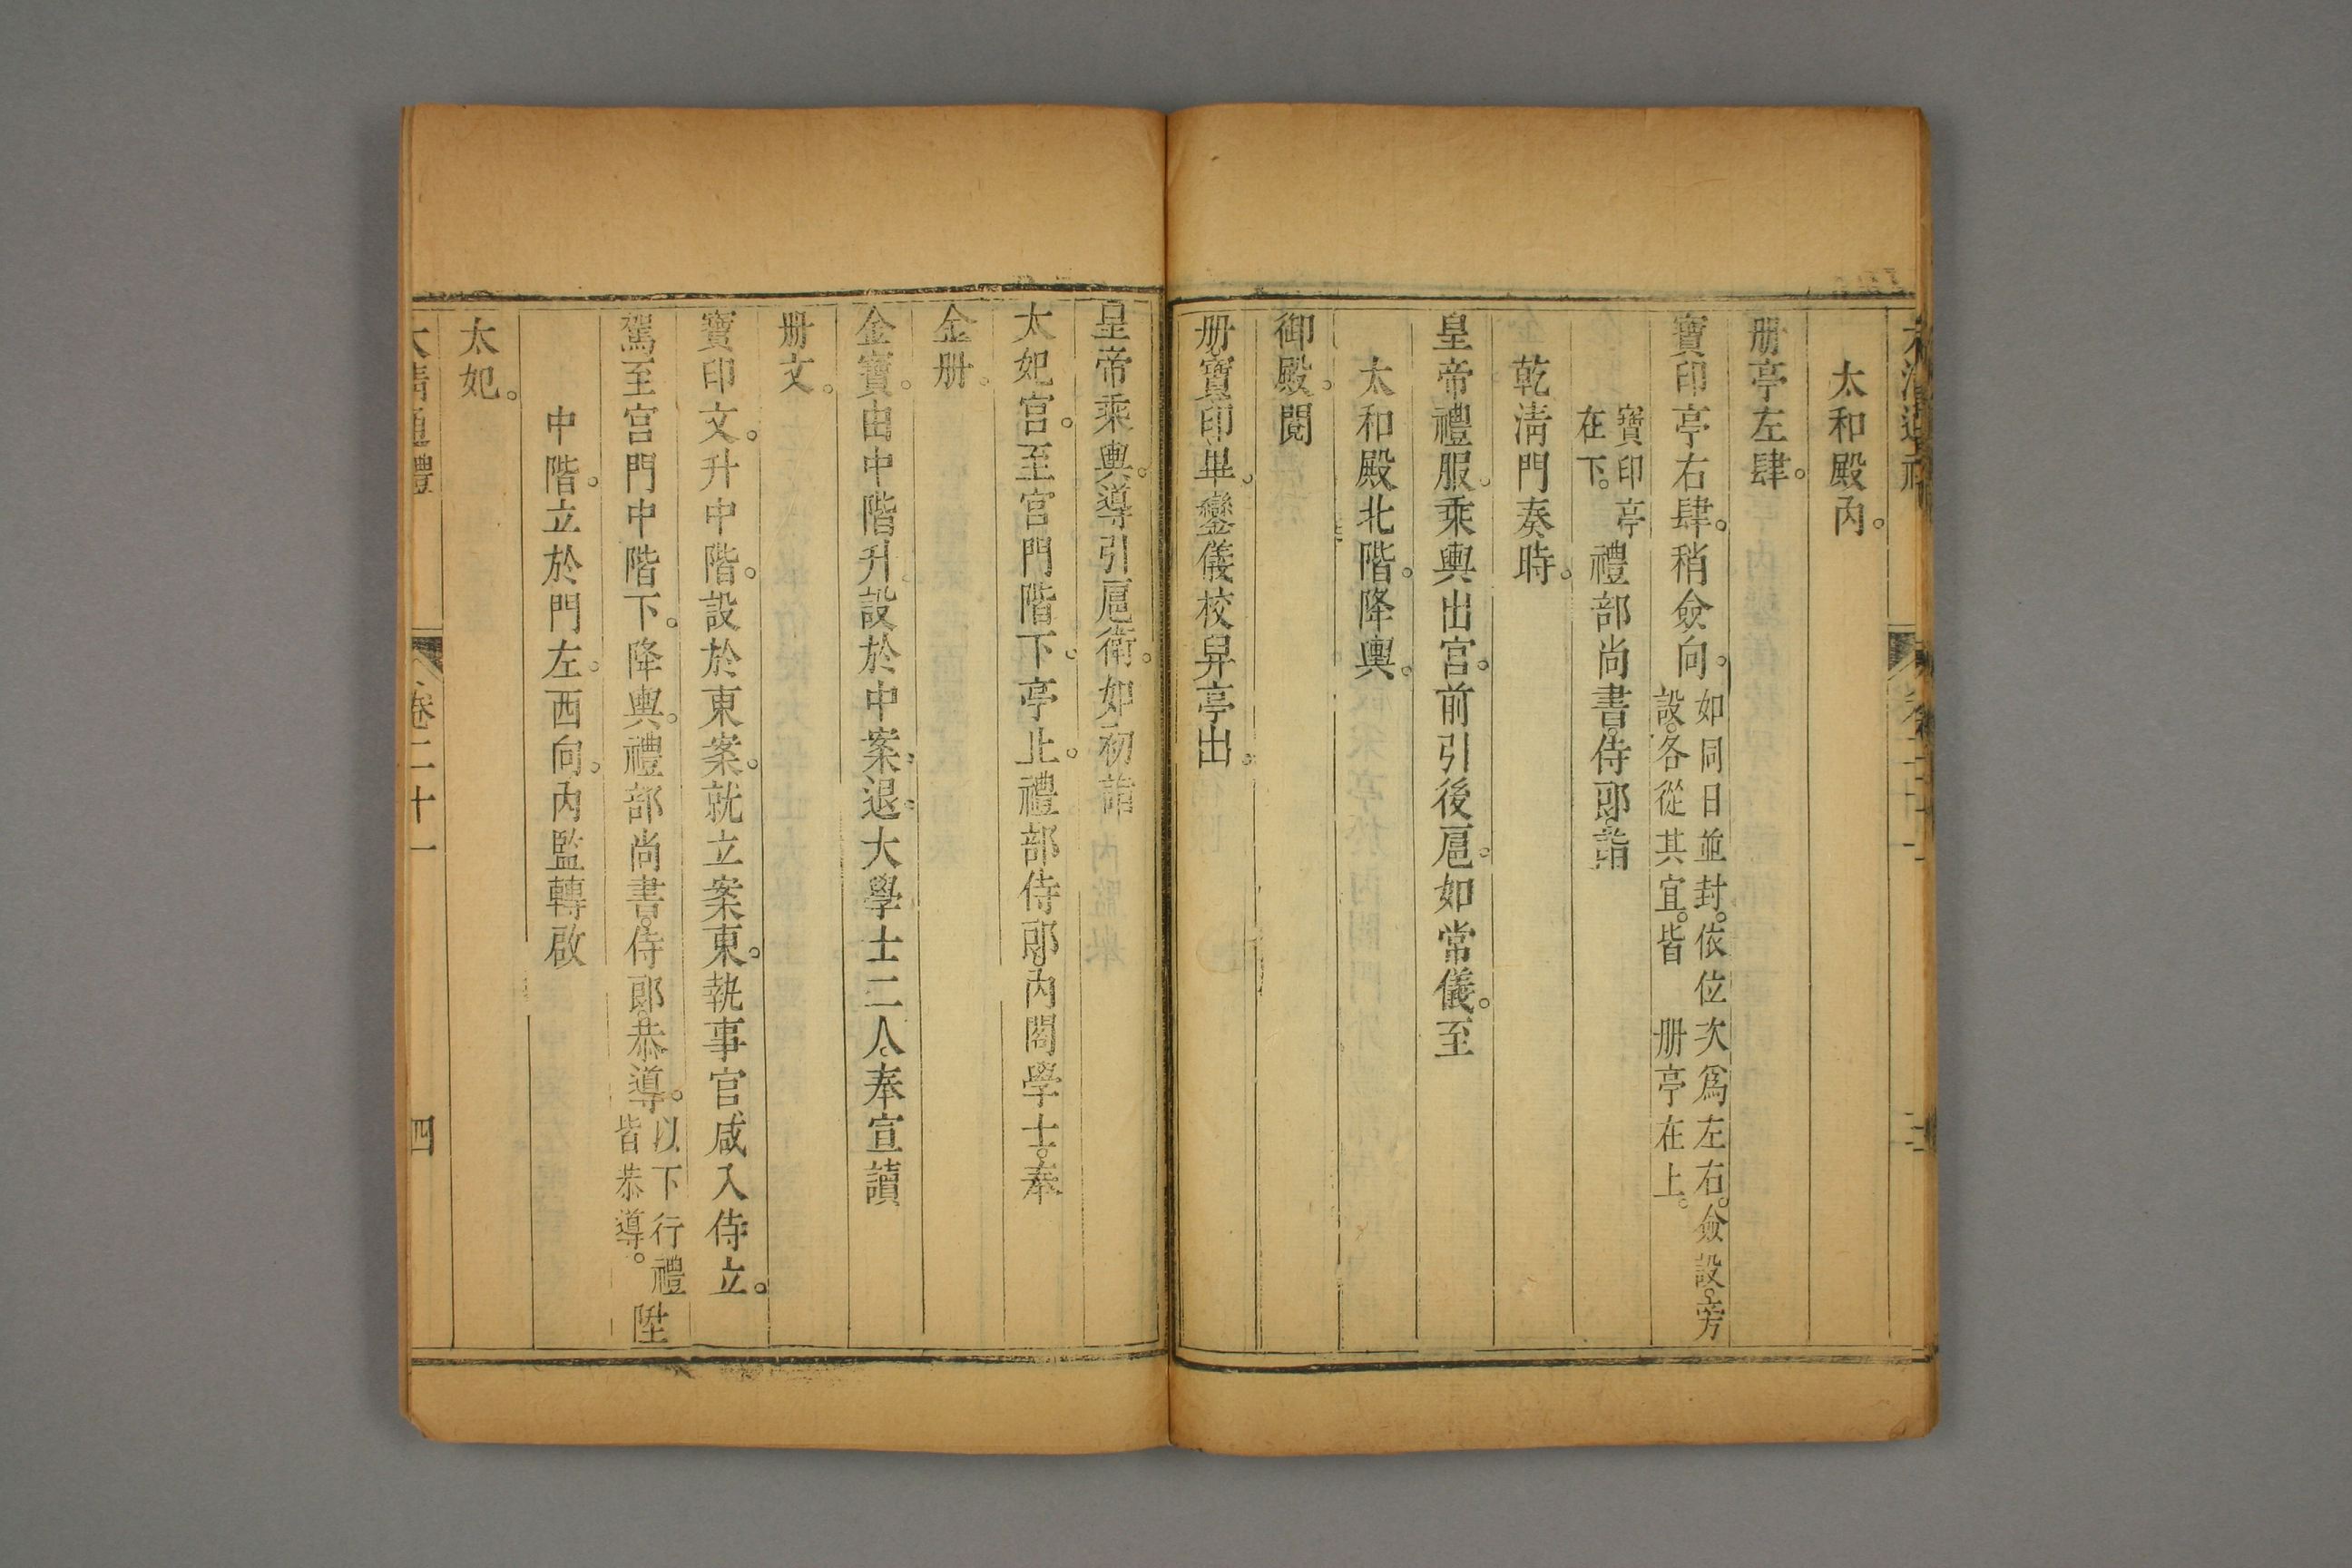 大清通禮 卷二十一 三
太和殿內。
册亭左肆。
寶印亭右肆。稍僉向。如同日並封。依位次爲左右。僉設。旁設。各從其宜。皆 册亭在上。
寶印亭在下。禮部尚書。侍郎。詣
乾淸門奏時。
皇帝禮服。乘輿出宫。前引後扈。如常儀。至
太和殿北階。降輿。
御殿。閱
册寶印畢。鑾儀校舁亭出。
皇帝乘輿。導引扈衛。如初詣
太妃宫。至宫門階下。亭止。禮部侍郎。內閣學士。奉
金册。
金寶。由中階升。設於中案。退。大學士二人。奉宣讀
册文。
寶印文。升中階。設於東案。就立案東。執事官咸入侍立。
駕至宫門中階下。降輿。禮部尚書。侍郎。恭導。以下行禮皆恭導。陞
中階。立於門左。西向。內監轉啟
太妃。
大清通禮 卷二十一 四